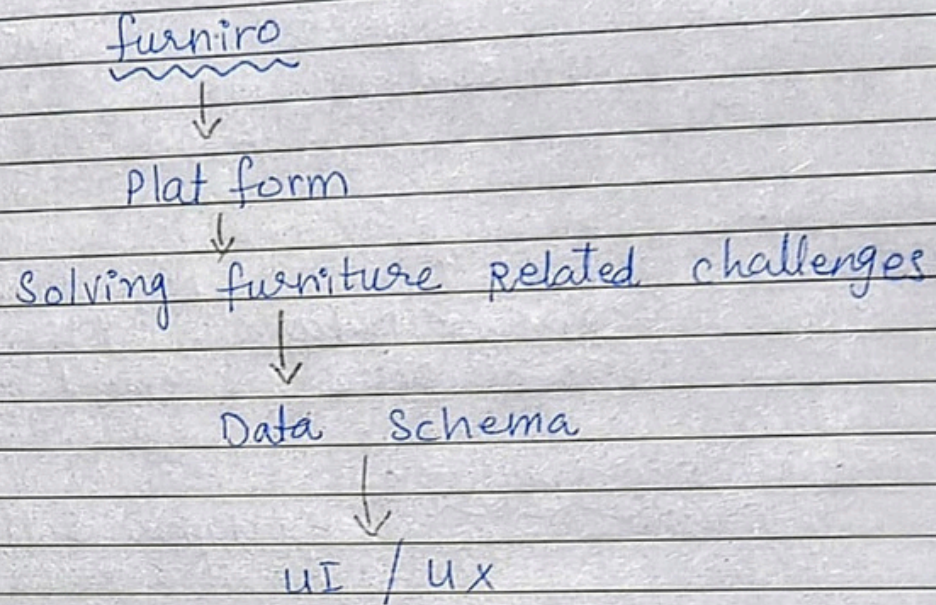 furniro
Plat form
Solving furniture Related challenges
Data Schema
UI / UX